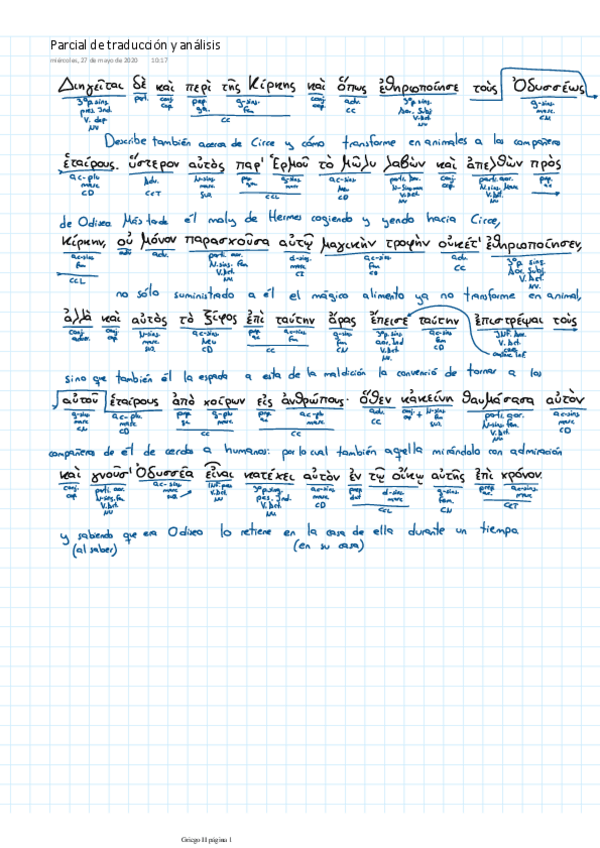 Parcial de traducción y análisis
miércoles, 27 de mayo de 2020 10:17
Διηγεῖται δὲ καὶ περὶ τῆς Κίρκης καὶ ὅπως ἐθηριοποίησε τοὺς Ὀδυσσέως
3ª p. sing. part. conj. prep. g-sing. conj. adv. 3ª p. sing. g-sing.
pres. Ind. cop. ge. fem. cop. CC masc
V. dep CC V. Act CN
NV NV
Describe también acerca de Circe y cómo transforme en animales a los compañero
ἑταίρους. ὕστερον αὐτὸς παρ' Ἑρμοῦ τὸ μῶλυ λαβὼν καὶ ἀπελθὼν πρὸς
ac-plu Adv. N-sing prep. g-sing. ac-sing conj. parti. aor. prep.
masc CCT masc masc Neu cop
CD SUJ CCL CD V. Act
de Odiseo Más tarde él moly de Hermes cogiendo y yendo hacia Circe,
Κίρκην, οὐ μόνον παρασχοῦσα αὐτῷ μαγικὴν τροφὴν οὐκέτ' ἐθηριοποίησεν,
ac-sing adv. adv. parti. aor. d-sing. ac-sing adv. 3ª p. sing.
fem N-sing. fem masc fem CC
CCL V. Act CI CD V. Act
NV NV
no sólo suministrado a él el mágico alimento ya no transforme en animal,
ἀλλὰ καὶ αὐτὸς τὸ ξίφος ἐπὶ ταύτην ἄρας ἔπεισε ταύτην ἐπιστρέψαι τοὺς
conj. conj. N-sing ac-sing prep. ac-sing 3ª p. sing ac-sing INF. Aor.
cop masc Neu fem fem V. Act
SUJ CD CC CN V. Act CD NV
NV
sino que también él la espada a esta de la maldición la convenció de tornar a los
αὐτοῦ ἑταίρους ἀπὸ χοίρων εἰς ἀνθρώπους· ὅθεν κἀκείνη θαυμάσασα αὐτὸν
g-sing ac-plu prep. g-plu prep. ac-plu adv. conj. + N-sing parti. aor. ac-sing
masc masc ge masc masc CC cop fem N-sing fem masc
CN CD CC CC SUJ V. Act CD
NV
compañero de él de cerdo a humanos: por lo cual también aquella mirándolo con admiración
καὶ γνοῦσ' Ὀδυσσέα εἶναι κατέχει αὐτὸν ἐν τῷ οἴκῳ αὐτῆς ἐπὶ χρόνον.
conj. parti. aor. ac-sing INF. pres 3ª p. sing. ac-sing prep d-sing. g-sing. prep ac-sing
cop N-sing. fem masc V. Act pres. Ind. masc dat masc fem. masc
V. Act SUJ NV V. Act CD CCL CN CCT
NV NV
y sabiendo que era Odiseo lo retiene en la casa de ella durante un tiempo
(al saber) (en su casa)
Griego II página 1